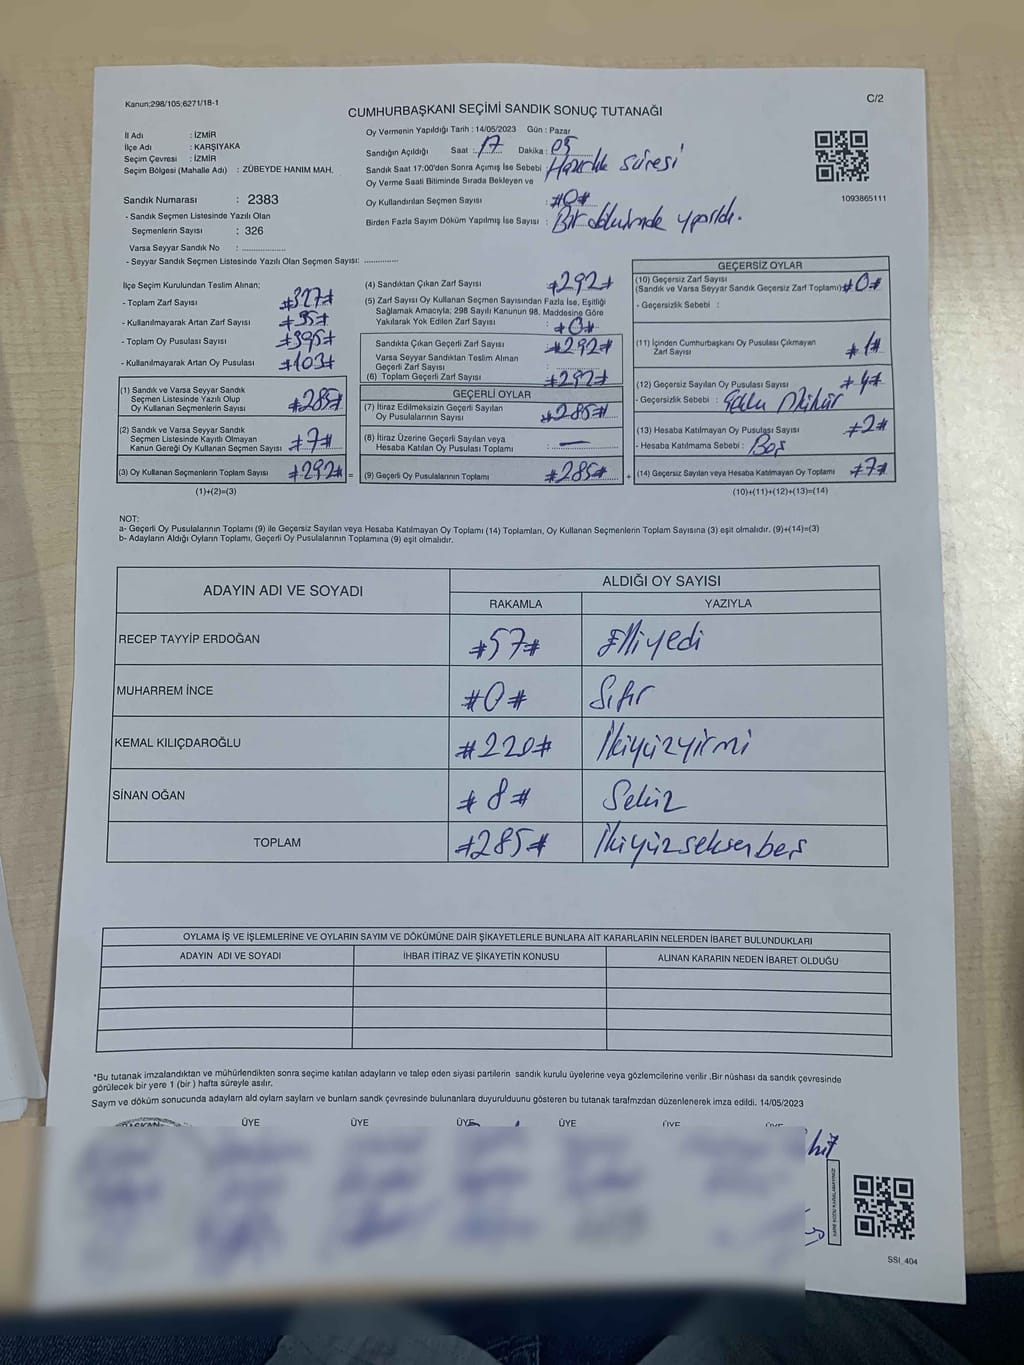 Kanun;298/105;6271/18-1
C/2
CUMHURBAŞKANI SEÇİMİ SANDIK SONUÇ TUTANAĞI
İl Adı : İZMİR
İlçe Adı : KARŞIYAKA
Seçim Çevresi : İZMİR
Seçim Bölgesi (Mahalle Adı) : ZÜBEYDE HANIM MAH.
Sandık Numarası : 2383
- Sandık Seçmen Listesinde Yazılı Olan
Seçmenlerin Sayısı : 326
Varsa Seyyar Sandık No : ................
- Seyyar Sandık Seçmen Listesinde Yazılı Olan Seçmen Sayısı: .............
Oy Vermenin Yapıldığı Tarih : 14/05/2023 Gün : Pazar
Sandığın Açıldığı Saat : 17 Dakika : 05
Sandık Saat 17:00'den Sonra Açımış İse Sebebi : Hazırlık süresi
Oy Verme Saati Bitiminde Sırada Bekleyen ve
Oy Kullandırılan Seçmen Sayısı : #0#
Birden Fazla Sayım Döküm Yapılmış İse Sayısı : Bir yapıldı.
1093865111
İlçe Seçim Kurulundan Teslim Alınan;
- Toplam Zarf Sayısı #327#
- Kullanılmayarak Artan Zarf Sayısı #35#
- Toplam Oy Pusulası Sayısı #395#
- Kullanılmayarak Artan Oy Pusulası #103#
(1) Sandık ve Varsa Seyyar Sandık
Seçmen Listesinde Yazılı Olup
Oy Kullanan Seçmenlerin Sayısı #285#
(2) Sandık ve Varsa Seyyar Sandık
Seçmen Listesinde Kayıtlı Olmayan
Kanun Gereği Oy Kullanan Seçmen Sayısı #7#
(3) Oy Kullanan Seçmenlerin Toplam Sayısı #292# =
(1)+(2)=(3)
(4) Sandıktan Çıkan Zarf Sayısı #292#
(5) Zarf Sayısı Oy Kullanan Seçmen Sayısından Fazla İse, Eşitliği
Sağlamak Amacıyla; 298 Sayılı Kanunun 98. Maddesine Göre
Yakılarak Yok Edilen Zarf Sayısı : #0#
Sandıkta Çıkan Geçerli Zarf Sayısı #292#
Varsa Seyyar Sandıktan Teslim Alınan
Geçerli Zarf Sayısı :
(6) Toplam Geçerli Zarf Sayısı #292#
GEÇERLİ OYLAR
(7) İtiraz Edilmeksizin Geçerli Sayılan
Oy Pusulalarının Sayısı #285#
(8) İtiraz Üzerine Geçerli Sayılan veya
Hesaba Katılan Oy Pusulası Toplamı : —
(9) Geçerli Oy Pusulalarının Toplamı #285# +
GEÇERSİZ OYLAR
(10) Geçersiz Zarf Sayısı
(Sandık ve Varsa Seyyar Sandık Geçersiz Zarf Toplamı) #0#
- Geçersizlik Sebebi :
(11) İçinden Cumhurbaşkanı Oy Pusulası Çıkmayan
Zarf Sayısı #1#
(12) Geçersiz Sayılan Oy Pusulası Sayısı #4#
- Geçersizlik Sebebi :
(13) Hesaba Katılmayan Oy Pusulası Sayısı #2#
- Hesaba Katılmama Sebebi : Boş
(14) Geçersiz Sayılan veya Hesaba Katılmayan Oy Toplamı #7#
(10)+(11)+(12)+(13)=(14)
NOT:
a- Geçerli Oy Pusulalarının Toplamı (9) ile Geçersiz Sayılan veya Hesaba Katılmayan Oy Toplamı (14) Toplamları, Oy Kullanan Seçmenlerin Toplam Sayısına (3) eşit olmalıdır. (9)+(14)=(3)
b- Adayların Aldığı Oyların Toplamı, Geçerli Oy Pusulalarının Toplamına (9) eşit olmalıdır.
ADAYIN ADI VE SOYADI
ALDIĞI OY SAYISI
RAKAMLA YAZIYLA
RECEP TAYYİP ERDOĞAN #57# Elliyedi
MUHARREM İNCE #0# Sıfır
KEMAL KILIÇDAROĞLU #220# İkiyüzyirmi
SİNAN OĞAN #8# Sekiz
TOPLAM #285# İkiyüzseksenbeş
OYLAMA İŞ VE İŞLEMLERİNE VE OYLARIN SAYIM VE DÖKÜMÜNE DAİR ŞİKAYETLERLE BUNLARA AİT KARARLARIN NELERDEN İBARET BULUNDUKLARI
ADAYIN ADI VE SOYADI İHBAR İTİRAZ VE ŞİKAYETİN KONUSU ALINAN KARARIN NEDEN İBARET OLDUĞU
*Bu tutanak imzalandıktan ve mühürlendikten sonra seçime katılan adayların ve talep eden siyasi partilerin sandık kurulu üyelerine veya gözlemcilerine verilir .Bir nüshası da sandık çevresinde
görülecek bir yere 1 (bir ) hafta süreyle asılır.
Saym ve döküm sonucunda adaylarn ald oylarn saylarn ve bunlarn sandk çevresinde bulunanlara duyurulduunu gösteren bu tutanak tarafmzdan düzenlenerek imza edildi. 14/05/2023
BAŞKAN ÜYE ÜYE ÜYE ÜYE ÜYE ÜYE
SSİ_404